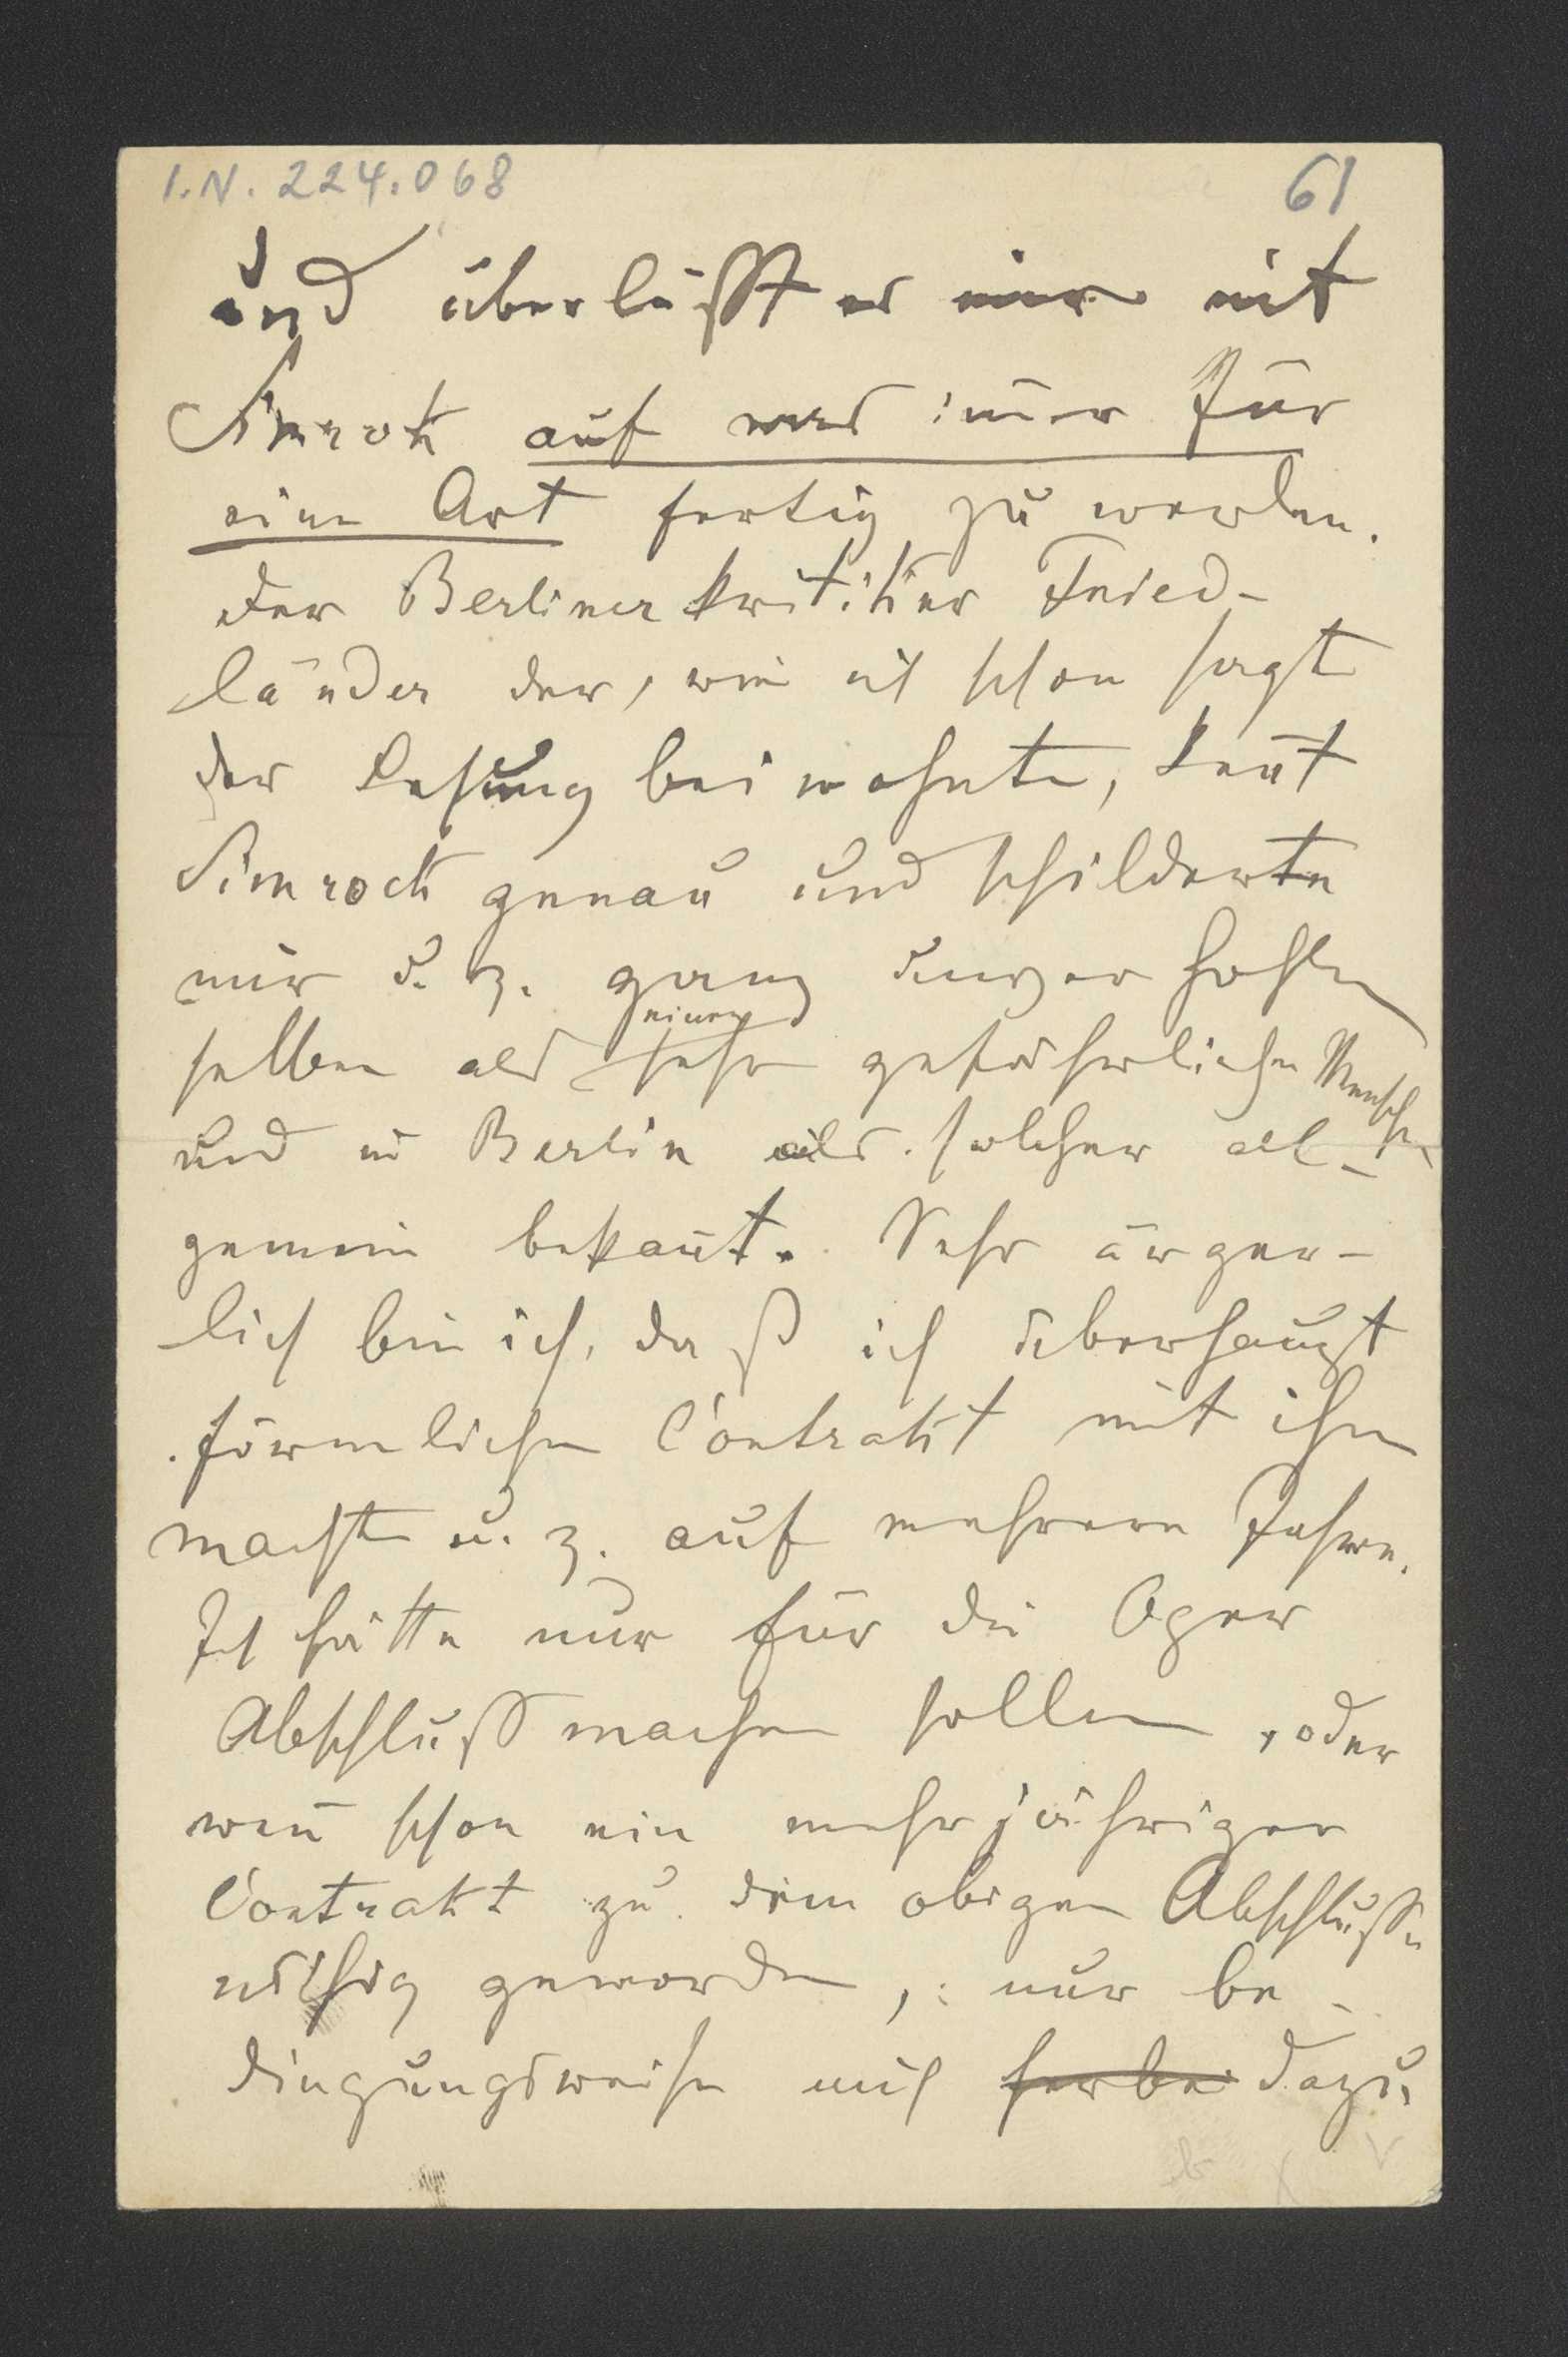 I.N. 224.068
61
und überlaßt es mir mit
Simrok auf was im̄er für
eine Art fertig zu werden.
Der Berliner Kritiker Fried-
länder der, wie ich schon sagt
der Lesung beiwohnte, ken̄t
Simrock genau und schilderte
mir u. z. ganz unverhohlen
selben als einen sehr gefährlichen Menschen
und in Berlin als solcher al-
gemein bekan̄t. Sehr ärger-
lich bin ich, daß ich überhaupt
förmlichen Contrakt mit ihm
machte u. z. auf mehrere Jahre.
Ich hätte nur für die Oper
Abschluß machen sollen, oder
wen̄ schon ein mehrjähriger
Contrakt zu dem obigen Abschluße
nöthig geworden, nur be-
dingungsweise mich herbei dazu